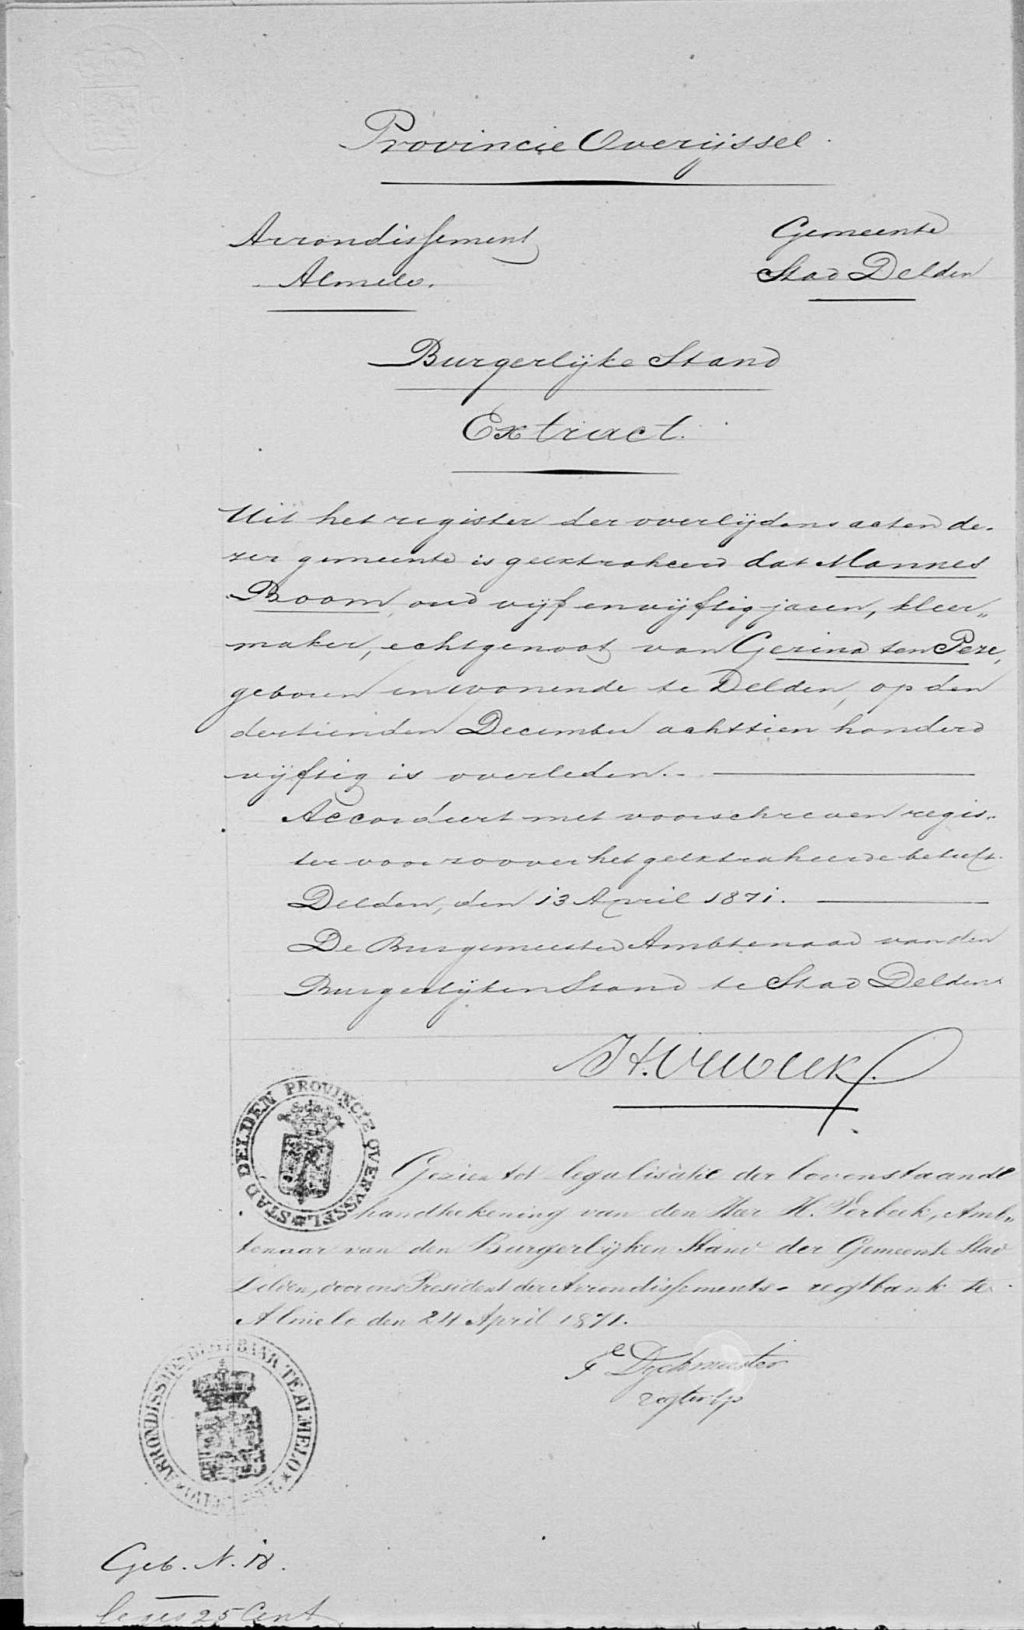 Provincie Overijssel
Arrondissement
Almelo.
Gemeente
Stad Delden
Burgerlijke Stand
Extract.
Uit het register der overlijdens acten de-
zer gemeente is geextraheerd dat Mannes
Boom, oud vijf en vijftig jaren, kleer„
maker, echtgenoot van Gerina ten Pere,
geboren en wonende te Delden, op den
dertienden December achttien honderd
vijftig is overleden.
Accordeert met voorschreven regis„
ter voor zoover het geextraheerde betreft.
Delden, den 13 April 1871.
De Burgemeester Ambtenaar van den
Burgerlijken Stand te Stad Delden
H. Verbeek.
STAD DELDEN PROVINCIE OVERYSSEL
Gezien tot legalisatie der bovenstaande
handtekening van den Heer H. Verbeek, Amb„
tenaar van den Burgerlijken Stand der Gemeente Stad
Delden, door ons President der Arrondissements-regtbank te
Almelo den 24 April 1871.
Dyckmeester
ARRONDISSEMENTS REGTBANK TE ALMELO
Geb. N. 18.
leges 25 Cent